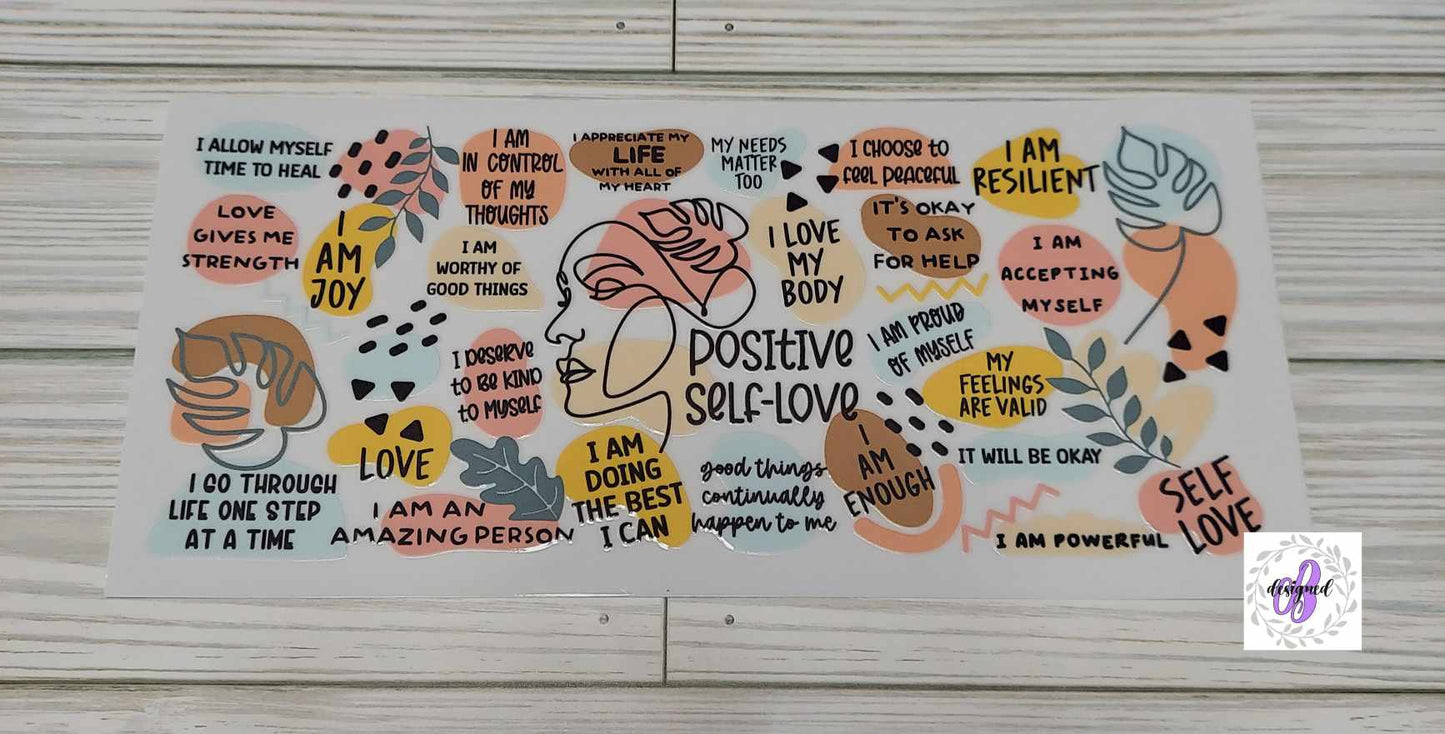 I ALLOW MYSELF
TIME TO HEAL
I AM
IN CONTROL
OF MY
THOUGHTS
I APPRECIATE MY
LIFE
WITH ALL OF
MY HEART
MY NEEDS
MATTER
TOO
I CHOOSE to
feel PEACEFUL
I AM
RESILIENT
LOVE
GIVES ME
STRENGTH
I
AM
JOY
I AM
WORTHY OF
GOOD THINGS
I LOVE
MY
BODY
IT'S OKAY
TO ASK
FOR HELP
I AM
ACCEPTING
MYSELF
I DESERVE
to BE KIND
to MYSELF
POSITIVE
SELF-LOVE
I AM PROUD
OF MYSELF
MY
FEELINGS
ARE VALID
LOVE
I GO THROUGH
LIFE ONE STEP
AT A TIME
I AM AN
AMAZING PERSON
I AM
DOING
THE BEST
I CAN
good things
continually
happen to me
I
AM
ENOUGH
IT WILL BE OKAY
I AM POWERFUL
SELF
LOVE
B
designed